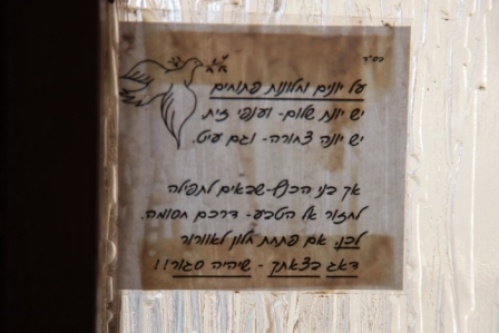 בס"ד
על יונים וחלונות פתוחים
יש יונת שלום- וענפי זית
יש יונה צחורה- וגם עיט.
אך בני הכנף-שבאים לתפילה
לחזור אל הטבע- דרכם חסומה.
לכן, אם פתחת חלון לאוורור
דאג בצאתך - שיהיה סגור!!